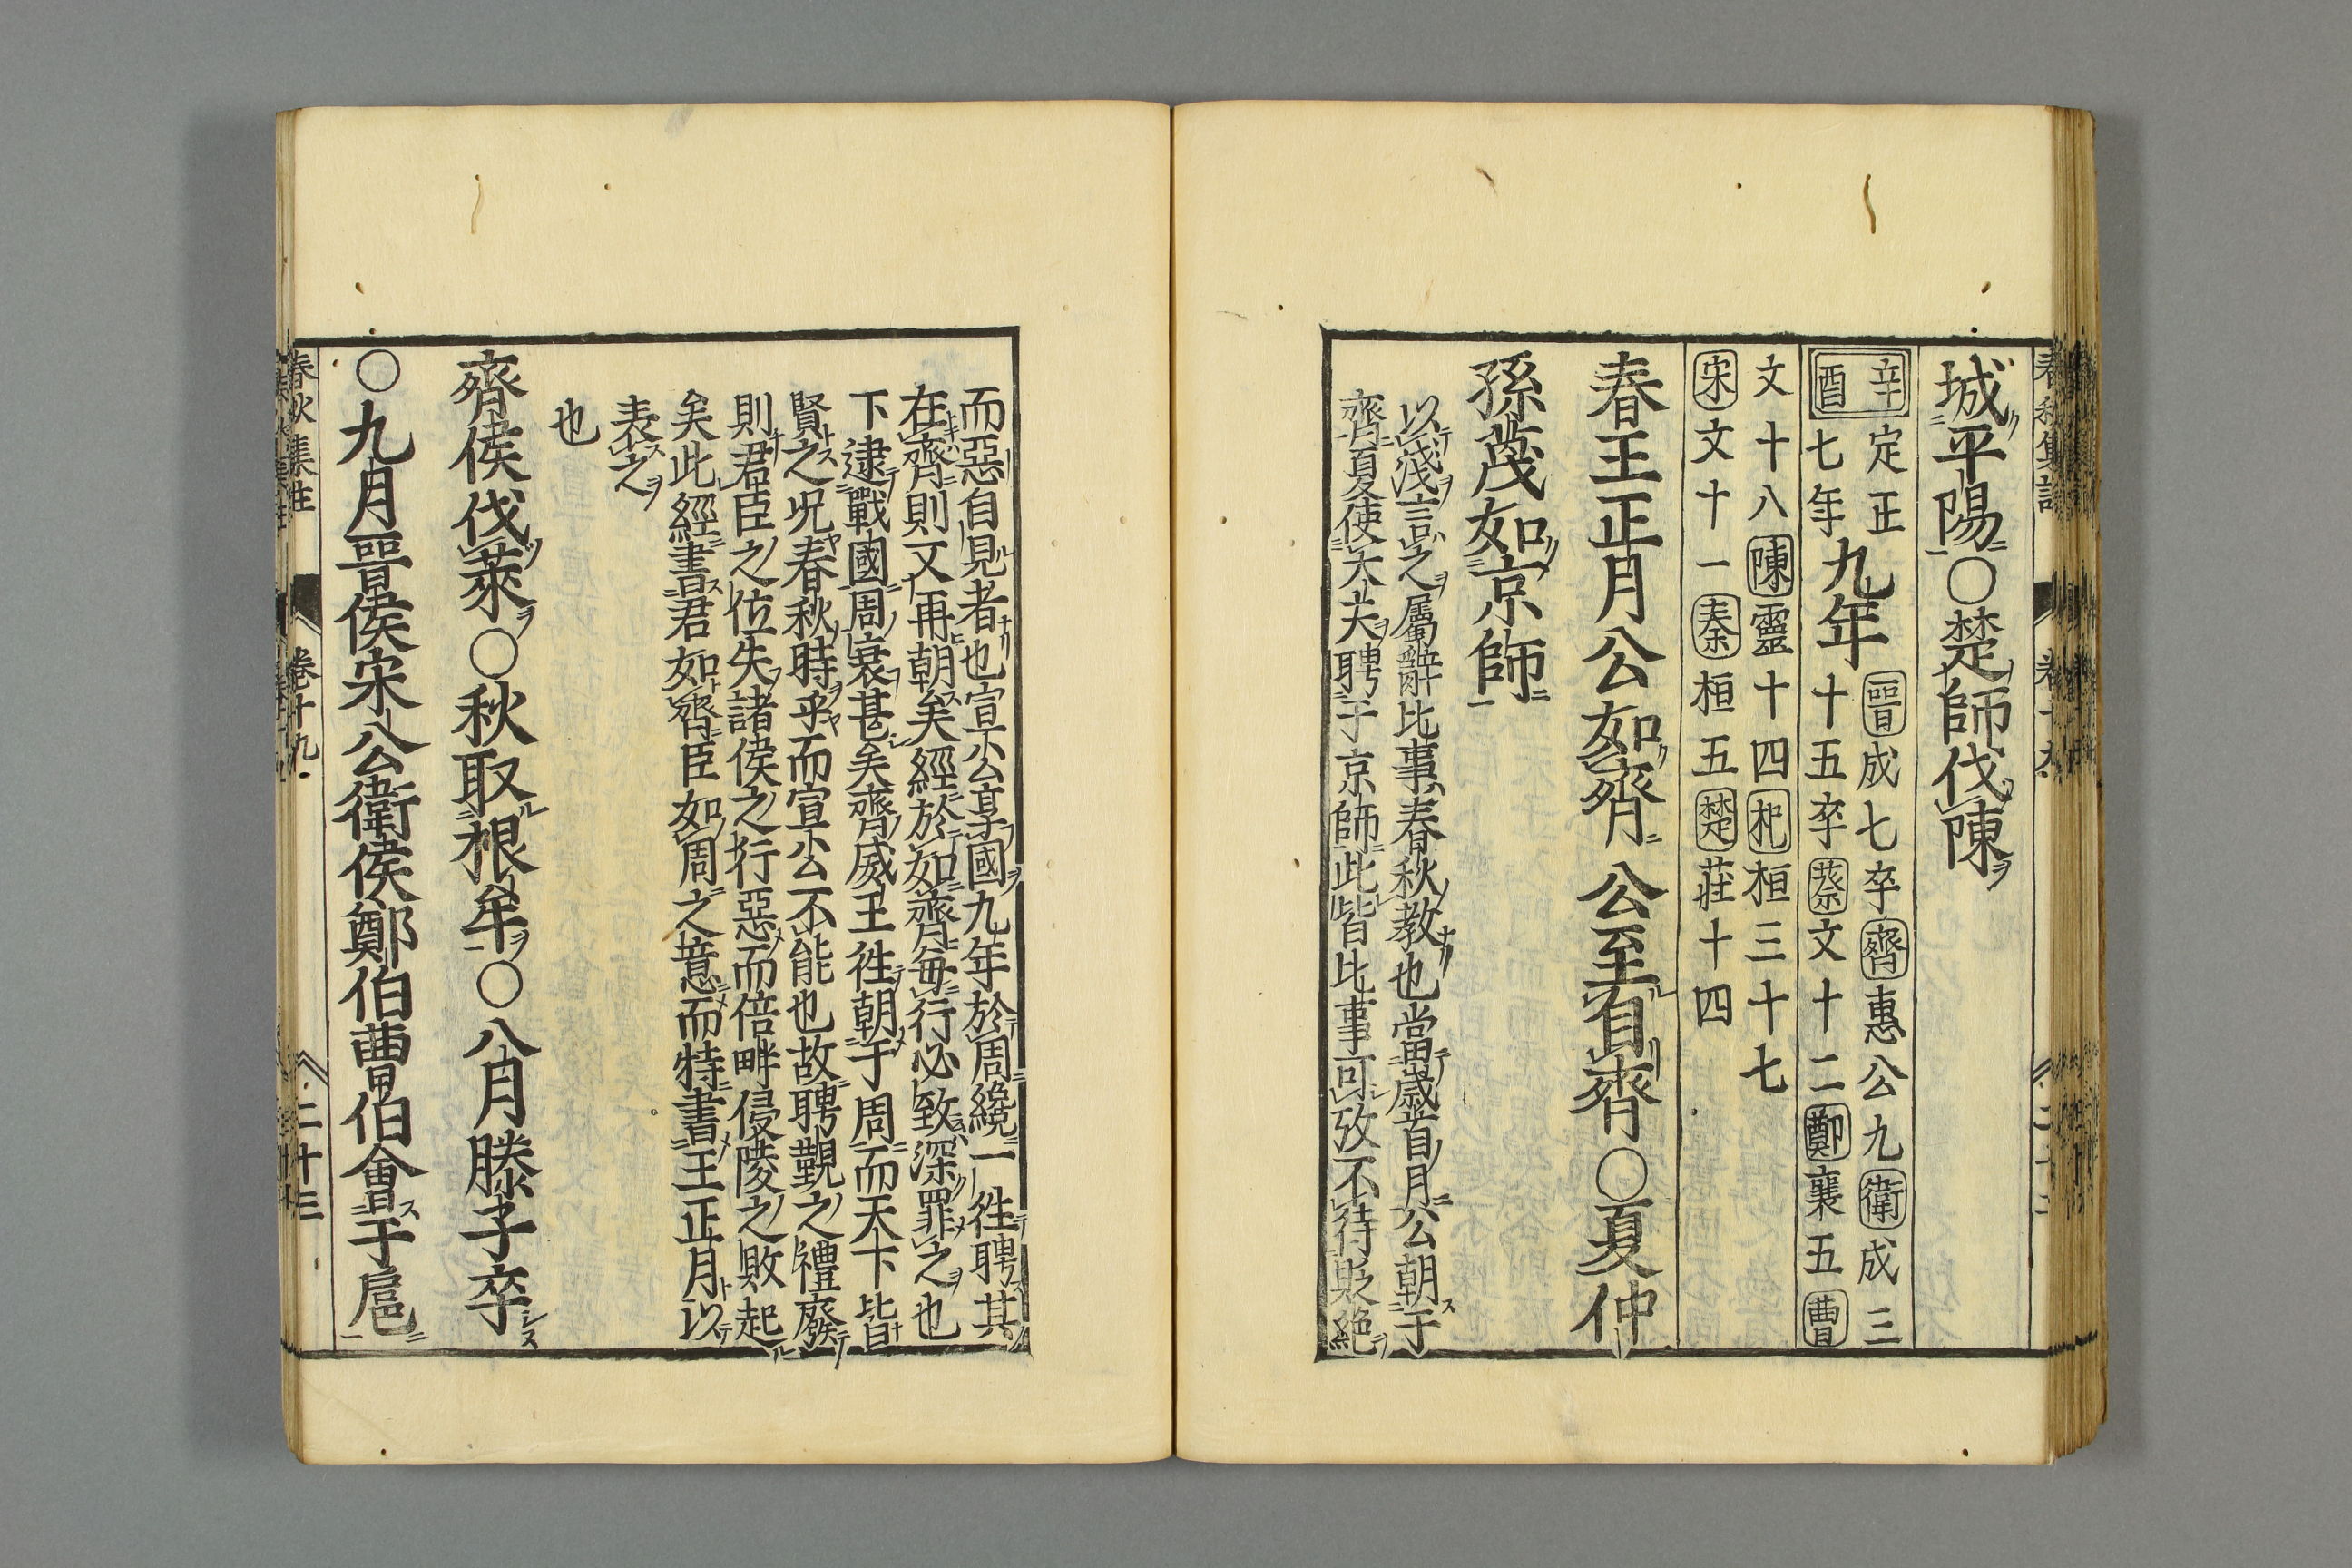 城平陽○楚師伐陳
辛酉
定正
七年
九年
晉成七卒齊惠公九衛成三
十五卒蔡文十二鄭襄五曹
文十八陳靈十四杞桓三十七
宋文十一秦桓五楚莊十四
春王正月公如齊公至自齊○夏仲
孫蔑如京師
以淺言之屬辭比事春秋教也當歲首月公朝于
齊夏使大夫聘于京師此皆比事可攷不待貶絕
而惡自見者也宣公享國九年於周纔一往聘其
在齊則又再朝矣經於如齊每行必致深罪之也
下逮戰國周衰甚矣齊威王往朝于周而天下皆
賢之況春秋時乎而宣公不能也故聘覲之禮廢
則君臣之位失諸侯之行惡而倍畔侵陵之敗起
矣此經書君如齊臣如周之意而特書王正月以
表之
也
齊侯伐萊○秋取根牟○八月滕子卒
○九月晉侯宋公衛侯鄭伯曹伯會于扈
春秋集註 卷十九 二十三